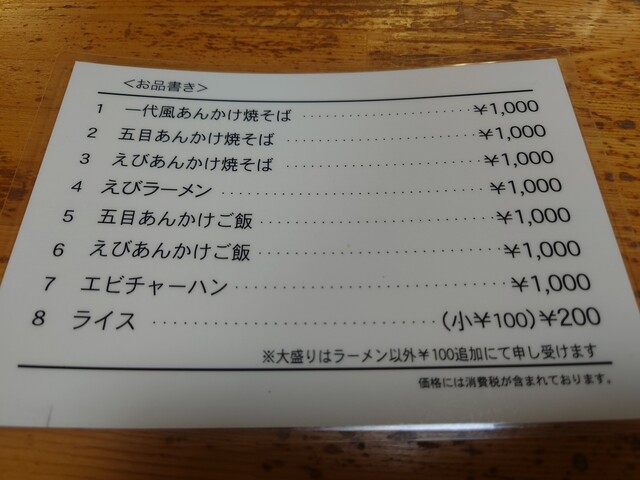 <お品書き>
1 一代風あんかけ焼そば ¥1,000
2 五目あんかけ焼そば ¥1,000
3 えびあんかけ焼そば ¥1,000
4 えびラーメン ¥1,000
5 五目あんかけご飯 ¥1,000
6 えびあんかけご飯 ¥1,000
7 エビチャーハン ¥1,000
8 ライス (小¥100)¥200
※大盛りはラーメン以外¥100追加にて申し受けます
価格には消費税が含まれております。